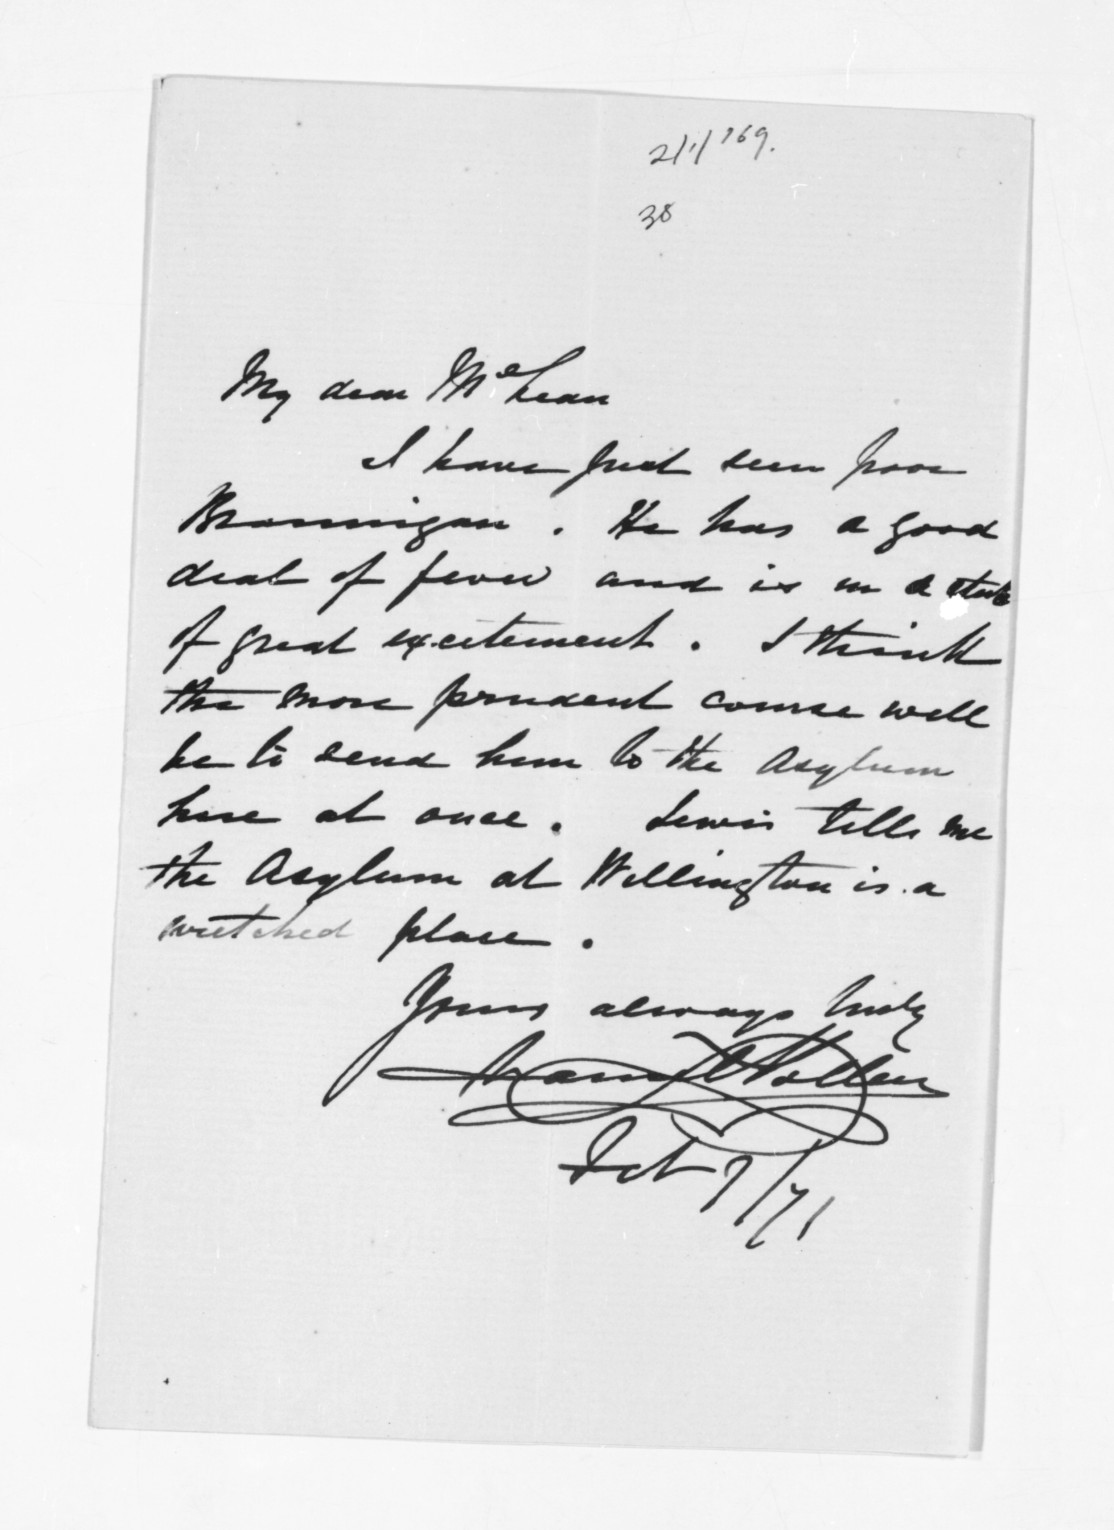 2/1/'69.
38
My dear McLean
I have just seen poor
Brannigan. He has a good
deal of fever and is in a state
of great excitement. I think
the more prudent course will
be to send him to the Asylum
here at once. Lewis tells me
the Asylum at Wellington is a
wretched place.
Yours always truly
Daniel Pollen
Feb 7/71